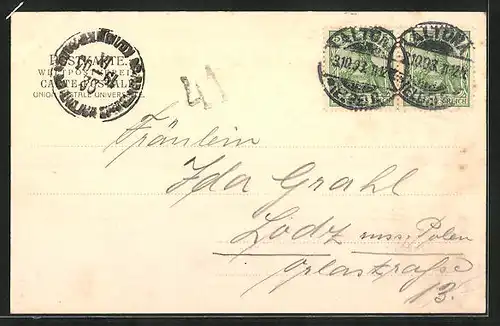 POSTKARTE.
WELTPOSTVEREIN
CARTE POSTALE
UNION POSTALE UNIVERSELLE
41
ALTONA
ALTONA
Fräulein
Ida Grahl
Lodz russ. Polen
Orlastraße
13.